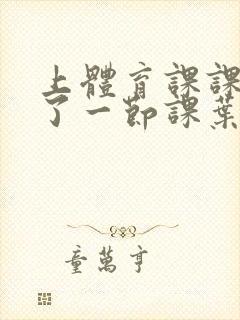 上體育課課
了一節課葉
童萬亨